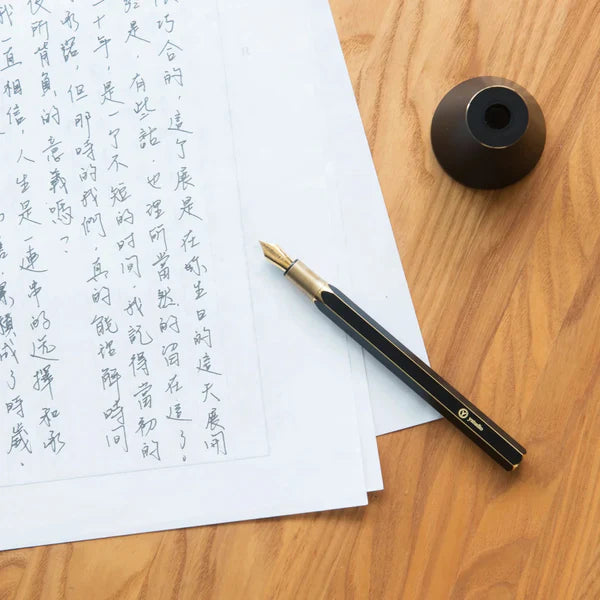 巧合的，這个展是在你生日的這天展開
是，有些話，也理所當然的留在這了。
二十年，是一个不短的時間，我記得當初的
承諾，但那時的我們，真的能理解時間
所肩負的意義嗎？
我一直相信，人生是一連串的選擇和承
累積成了時歲，
ystudio